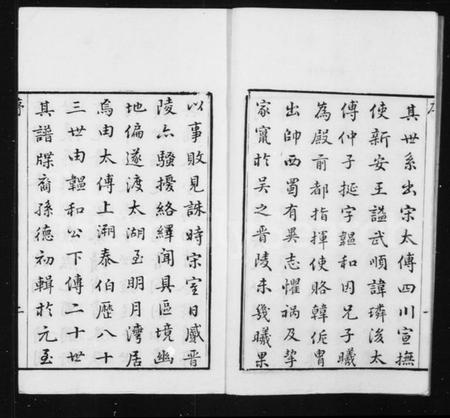 其世系出宋太傅四川宣撫
使新安王諡武順諱璘後太
傅仲子挻字韞和因兄子曦
為殿前都指揮使賂韓侂冑
出帥西蜀有異志懼禍及挈
家竄於吳之晋陵未幾曦果
以事敗見誅時宋室日蹙晋
陵亦騷擾絡繹聞具區境幽
地偏遂渡太湖至明月灣居
焉由太傅上溯泰伯歷八十
三世由韞和公下傳二十世
其譜牒裔孫德初輯於元至